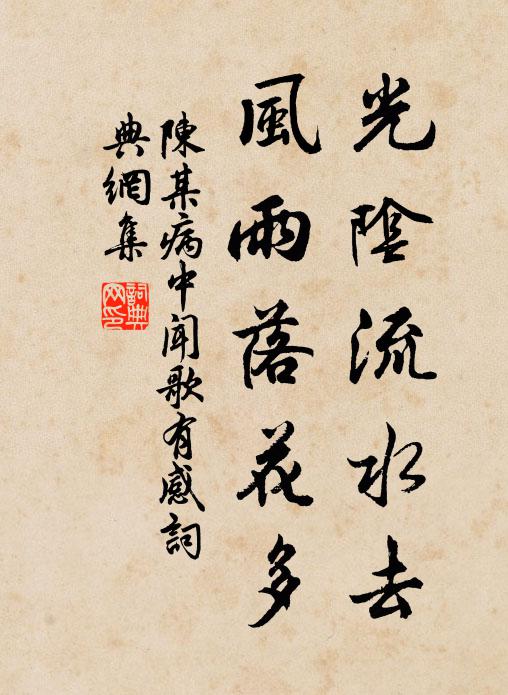 光陰流水去
風雨落花多
陳某病中聞歌有感詞
典網集
詞典
网印